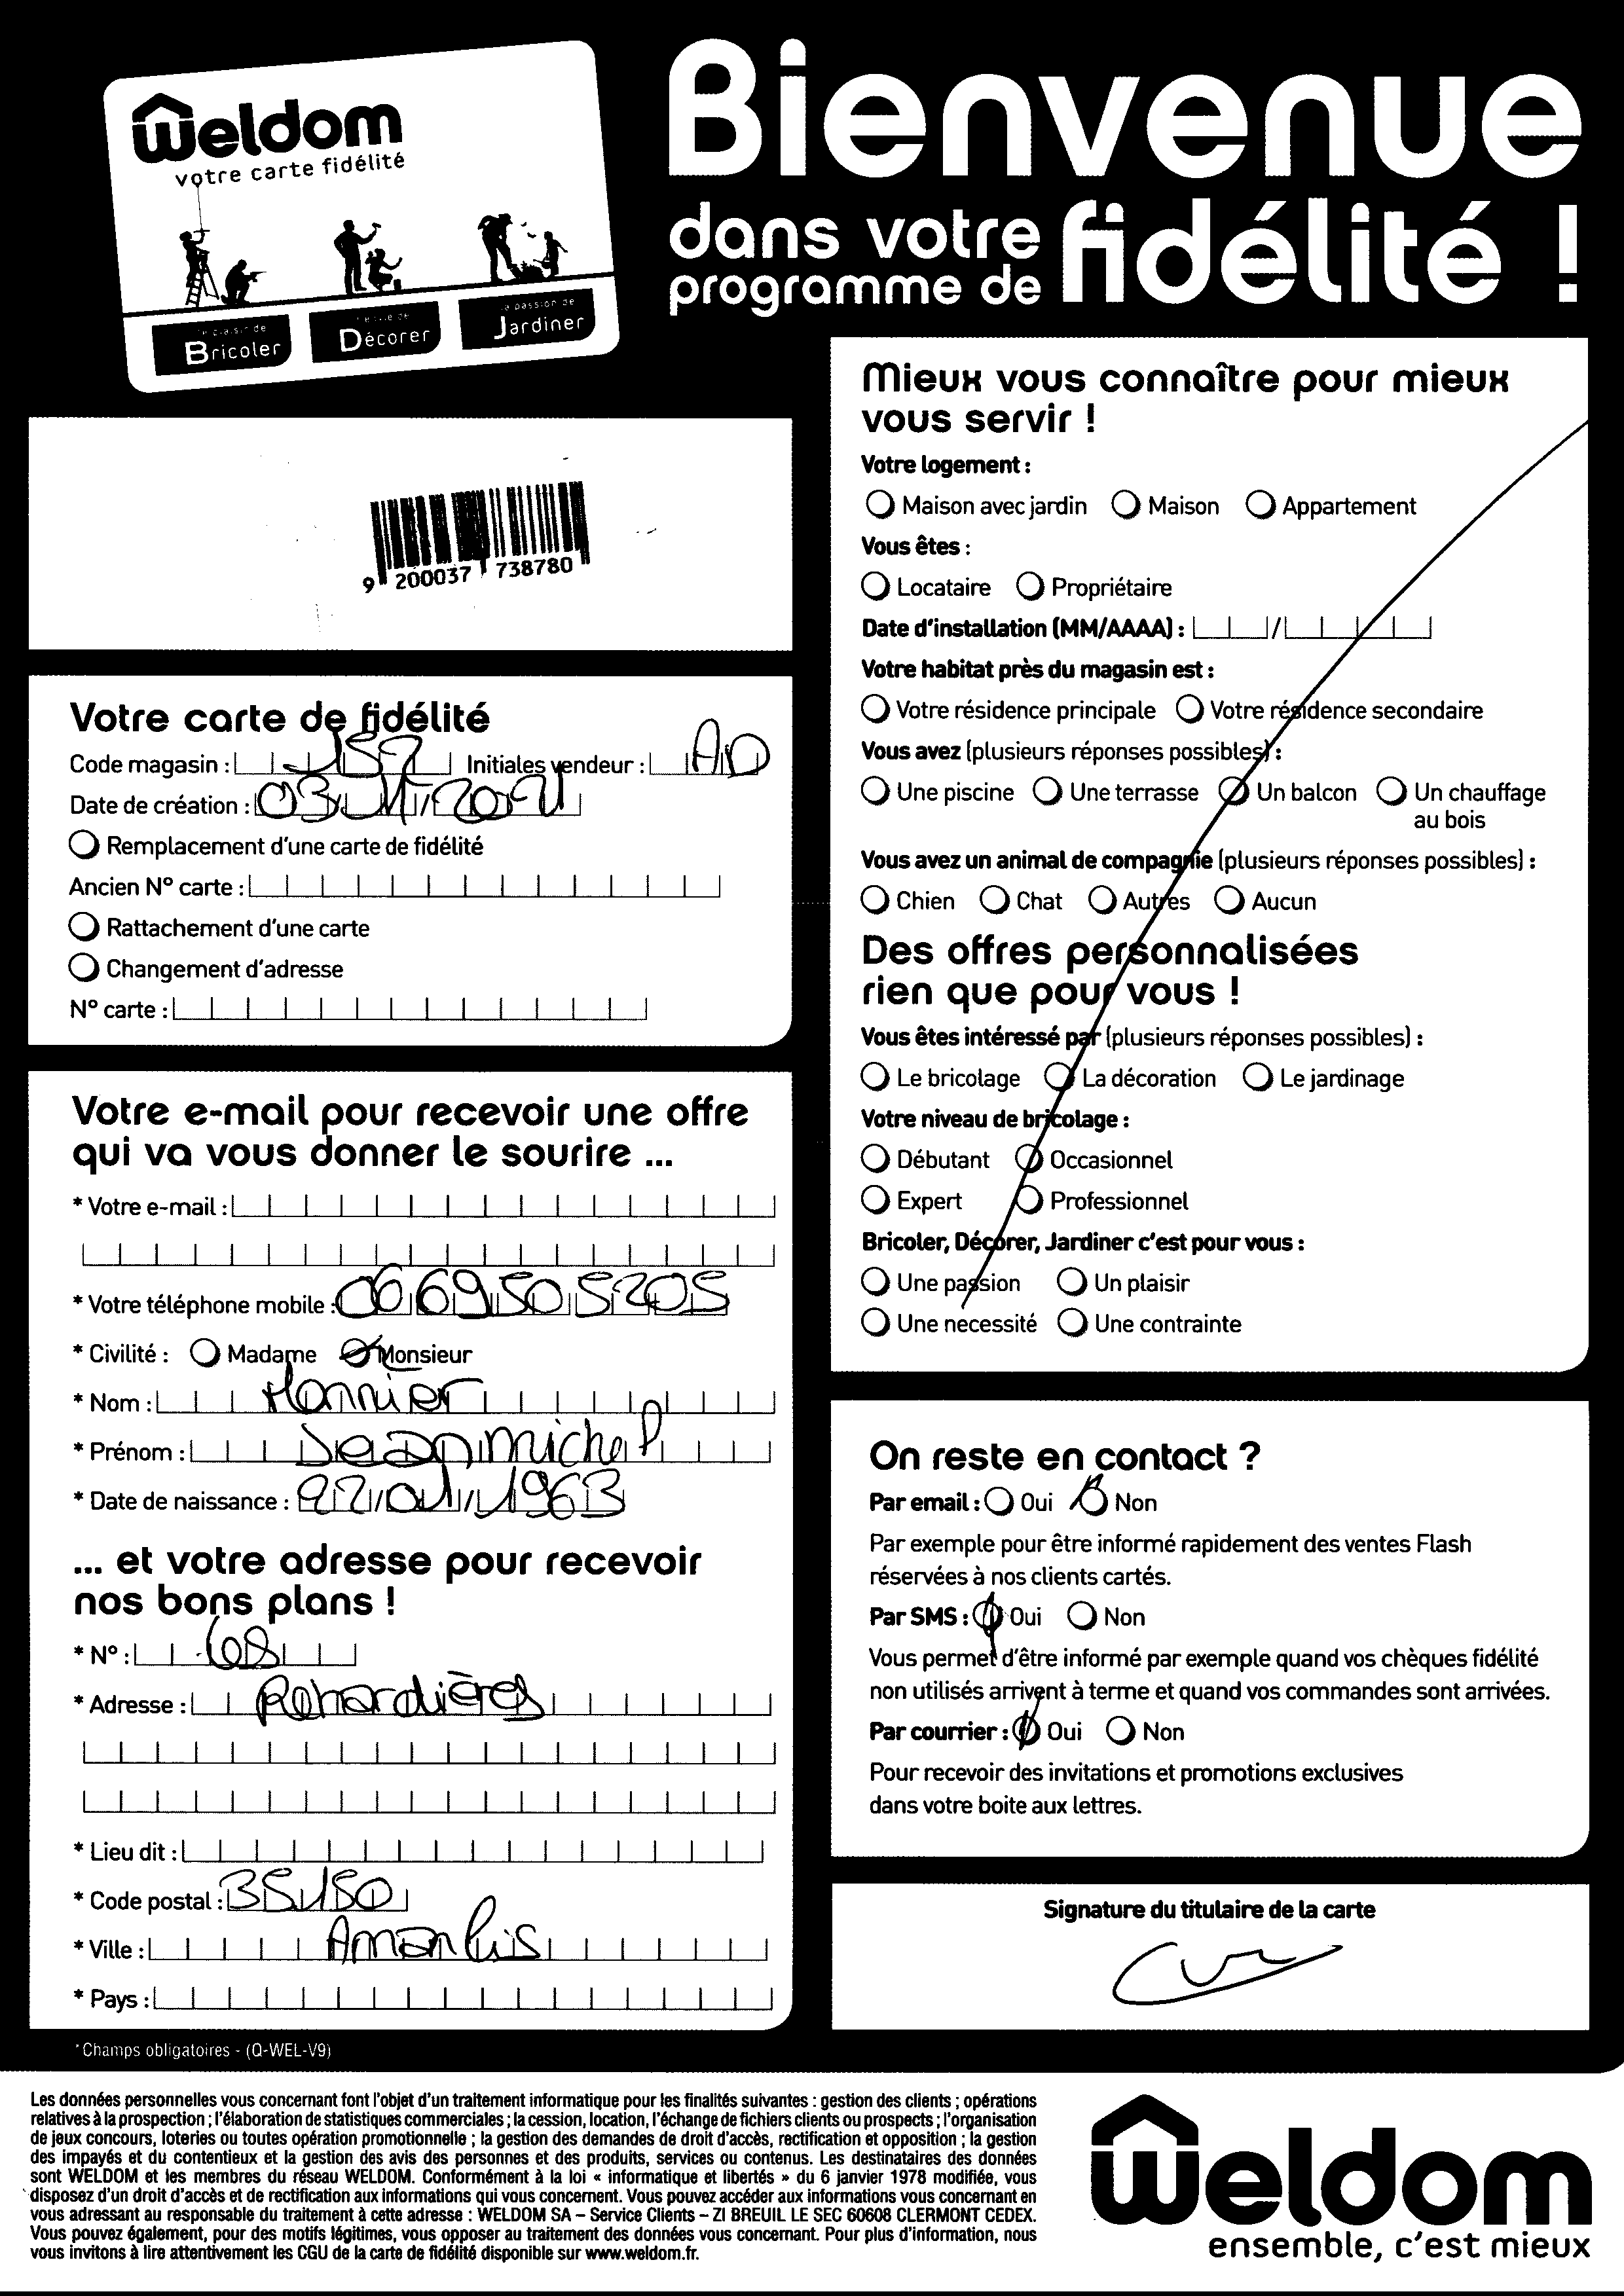 Weldom
votre carte fidélité
le plaisir de
Bricoler
Décorer
la passion de
Jardiner
Bienvenue
dans votre
programme de fidélité !
9 200037 738780
Votre carte de fidélité
Code magasin : 157 Initiales vendeur : AD
Date de création :
Remplacement d'une carte de fidélité
Ancien N° carte :
Rattachement d'une carte
Changement d'adresse
N° carte :
Votre e-mail pour recevoir une offre
qui va vous donner le sourire ...
* Votre e-mail :
* Votre téléphone mobile : 0669505205
* Civilité : Madame Monsieur
* Nom : Monnier
* Prénom : Jean michel
* Date de naissance : 1963
... et votre adresse pour recevoir
nos bons plans !
* N° : 68
* Adresse :
* Lieu dit :
* Code postal : 35150
* Ville : Amanlis
* Pays :
*Champs obligatoires - (Q-WEL-V9)
Mieux vous connaître pour mieux
vous servir !
Votre logement :
Maison avec jardin Maison Appartement
Vous êtes :
Locataire Propriétaire
Date d'installation (MM/AAAA) : /
Votre habitat près du magasin est :
Votre résidence principale Votre résidence secondaire
Vous avez (plusieurs réponses possibles) :
Une piscine Une terrasse Un balcon Un chauffage
au bois
Vous avez un animal de compagnie (plusieurs réponses possibles) :
Chien Chat Autres Aucun
Des offres personnalisées
rien que pour vous !
Vous êtes intéressé par (plusieurs réponses possibles) :
Le bricolage La décoration Le jardinage
Votre niveau de bricolage :
Débutant Occasionnel
Expert Professionnel
Bricoler, Décorer, Jardiner c'est pour vous :
Une passion Un plaisir
Une necessité Une contrainte
On reste en contact ?
Par email : Oui Non
Par exemple pour être informé rapidement des ventes Flash
réservées à nos clients cartés.
Par SMS : Oui Non
Vous permet d'être informé par exemple quand vos chèques fidélité
non utilisés arrivent à terme et quand vos commandes sont arrivées.
Par courrier : Oui Non
Pour recevoir des invitations et promotions exclusives
dans votre boite aux lettres.
Signature du titulaire de la carte
Les données personnelles vous concernant font l'objet d'un traitement informatique pour les finalités suivantes : gestion des clients ; opérations
relatives à la prospection ; l'élaboration de statistiques commerciales ; la cession, location, l'échange de fichiers clients ou prospects ; l'organisation
de jeux concours, loteries ou toutes opération promotionnelle ; la gestion des demandes de droit d'accès, rectification et opposition ; la gestion
des impayés et du contentieux et la gestion des avis des personnes et des produits, services ou contenus. Les destinataires des données
sont WELDOM et les membres du réseau WELDOM. Conformément à la loi « informatique et libertés » du 6 janvier 1978 modifiée, vous
disposez d'un droit d'accès et de rectification aux informations qui vous concernent. Vous pouvez accéder aux informations vous concernant en
vous adressant au responsable du traitement à cette adresse : WELDOM SA – Service Clients – ZI BREUIL LE SEC 60608 CLERMONT CEDEX.
Vous pouvez également, pour des motifs légitimes, vous opposer au traitement des données vous concernant. Pour plus d'information, nous
vous invitons à lire attentivement les CGU de la carte de fidélité disponible sur www.weldom.fr.
Weldom
ensemble, c'est mieux